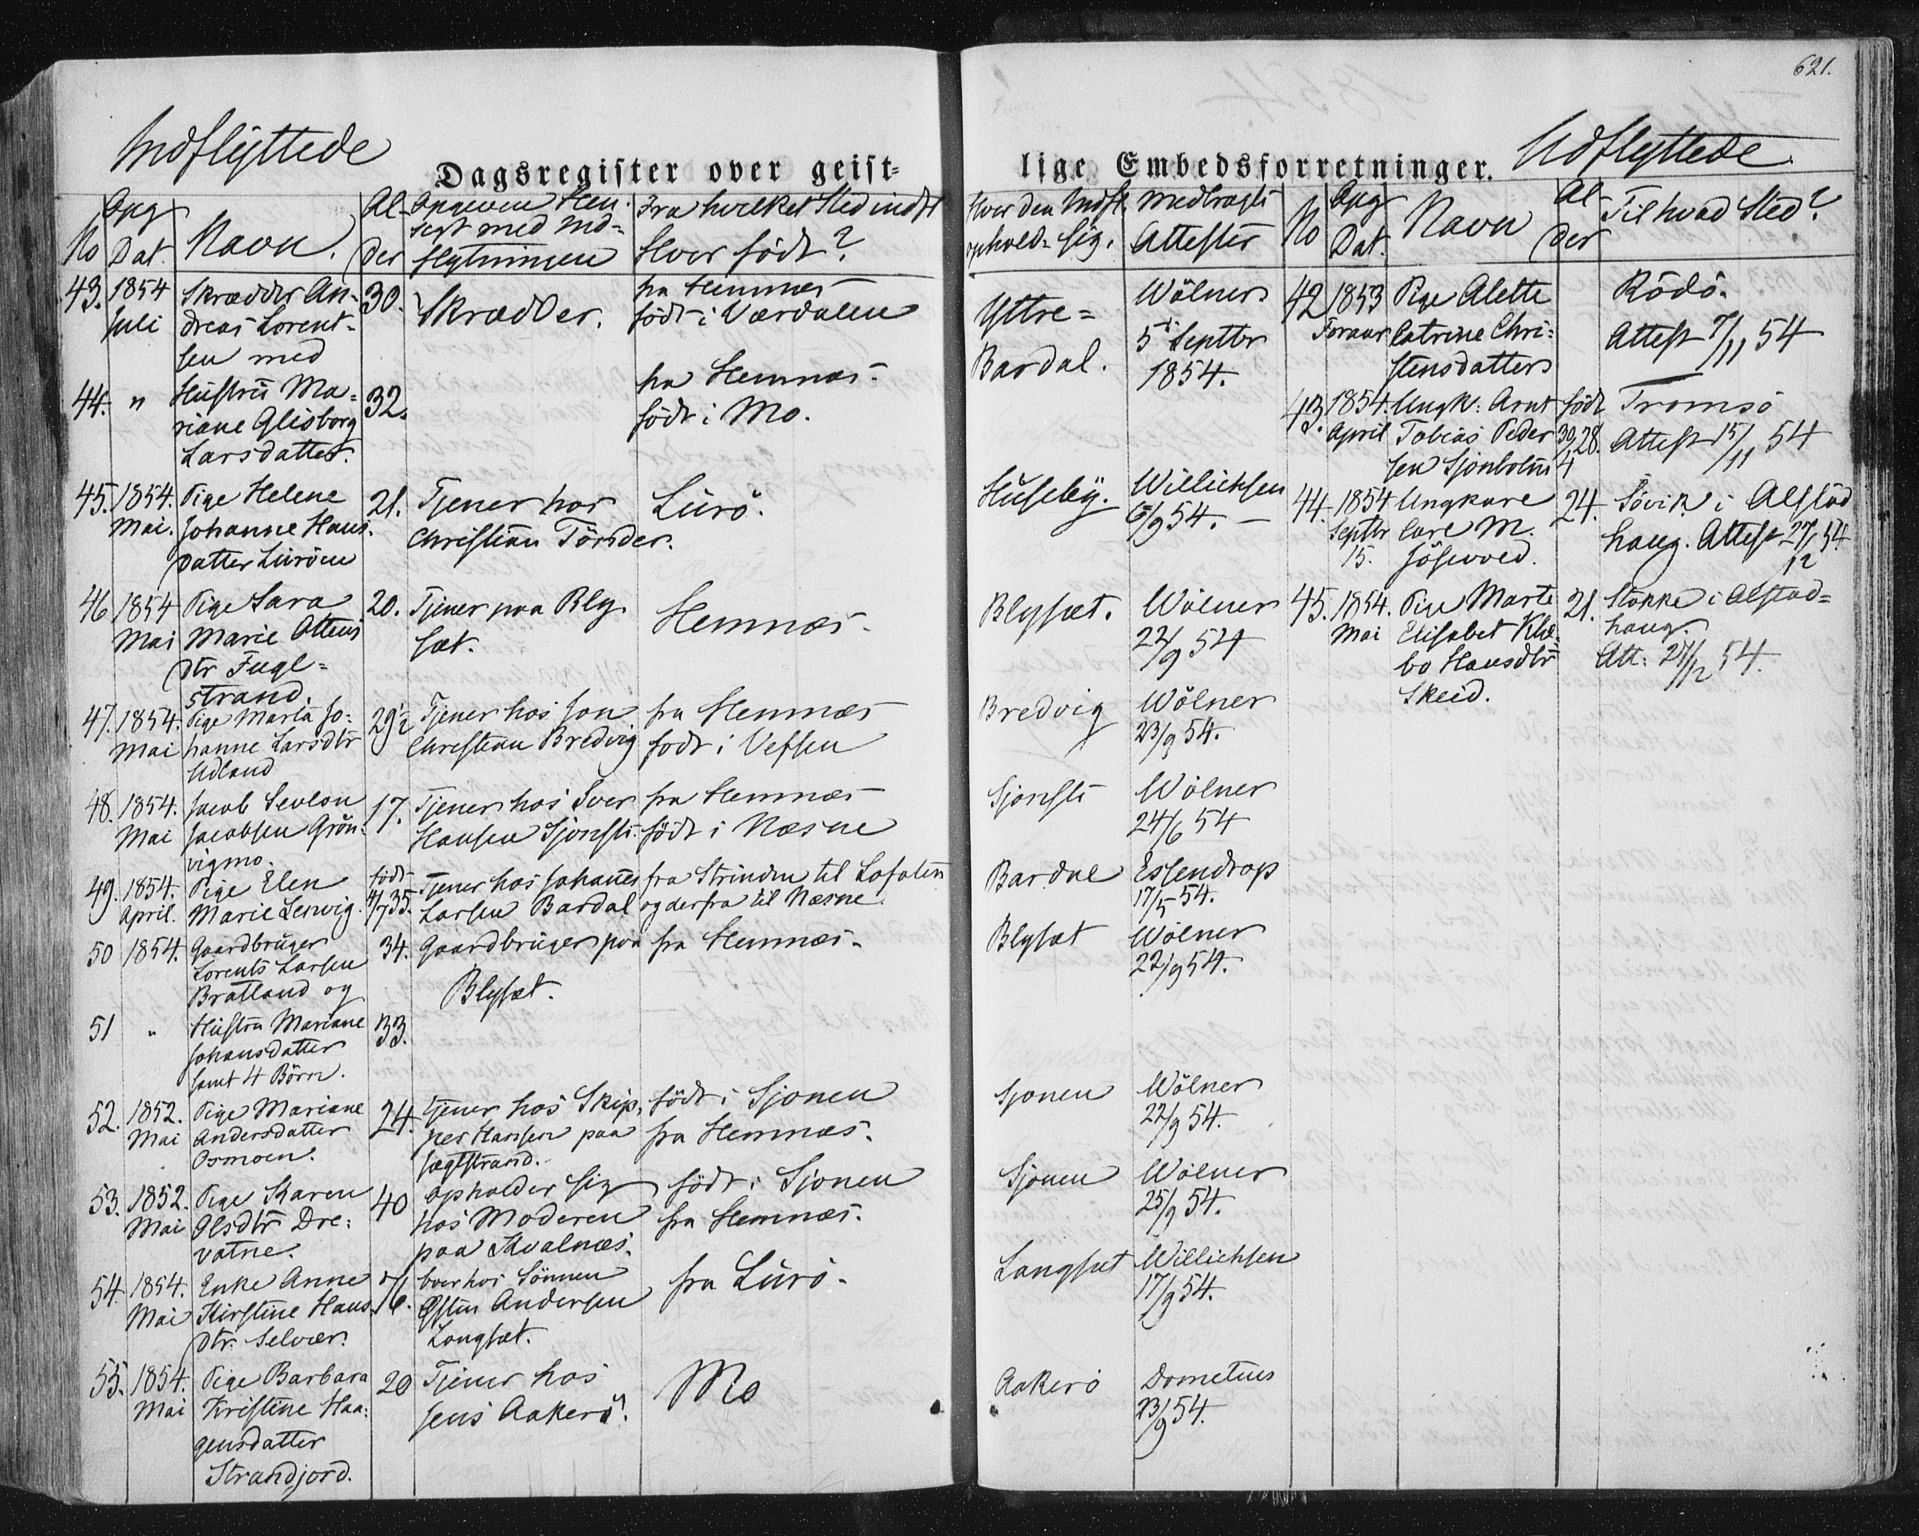 621.
Indflyttede
Dagsregister over geist-
lige Embedsforretninger.
Udflyttede
No
Opg Dat.
Navn.
Al-
der
Opgiven Hen-
sigt med Ind-
flytningen
Fra hvilket Sted indfl
Hvor født?
Hvor den Indfl.
ophold. sig.
Medbragte
Attester
No
Opg
Dat.
Navn
Al-
der
Til hvad Sted?
43. 1854 Juli
Skrædder An-
dreas Lorent-
sen med
30.
Skrædder.
fra Hemnæs
født i Værdalen
Yttre-
Bardal.
Wölner
5 Septter
1854.
44. "
Hustru Ma-
riane Elisborg
Larsdatter.
32.
fra Hemnæs.
født i Mo.
45. 1854. Mai.
Pige Helene
Johanne Hans
datter Luröen
21.
Tjener hos
Christian Törsder.
Lurö.
Huseby.
Willichsen
6/9 54.
46 1854 Mai
Pige Sara
Marie Ottens
dtr Fugl-
strand.
20.
Tjener paa Bly
sæt.
Hemnæs.
Blysæt.
Wölner
22/9 54
47. 1854. Mai
Pige Marta Jo-
hanne Larsdtr
Udland
29½
Tjener hos Jon
Christian Bredvig
fra Hemnæs
født i Vefsen
Bredvig
Wölner
23/9 54.
48. 1854. Mai
Jacob Sevlon
Jacobsen Grön-
vigmo.
17.
Tjener hos Iver
Hansen Sjonsli.
fra Hemnæs
født i Næsne
Sjonsli
Wölner
24/6 54
49. 1854. April.
Pige Elen
Marie Lervig.
født
4/7 35.
Tjener hos Johanes
Larsen Bardal
fra Strinden til Lofoten
og derfra til Næsne.
Bardal
Essendrop
17/5 54.
50 1854.
Gaardbruger
Lorents Larsen
Bratland og
34.
Gaardbruger paa
Blysæt.
fra Hemnæs.
Blysæt
Wölner
22/9 54.
51 "
Hustru Mariane
Johansdatter
samt 4 Börn.
33.
52. 1852. Mai
Pige Mariane
Andersdatter
Osmoen.
24.
tjener hos Skip-
per Hansen paa
født i Sjonen
fra Hemnæs.
Sjonen
Wölner
22/9 54.
53. 1852. Mai
Pige Karen
Olsdtr Dre-
vatne.
40
Opholder sig
hos Moderen
paa Kvalnæs.
født i Sjonen
fra Hemnæs.
Sjonen
Wölner
25/9 54.
54. 1854. Mai
Enke Anne
Kirstine Hans
dtr. Selvær.
boer hos Sönnen
Andersen
Langsæt.
fra Lurö.
Langsæt
Willichsen
17/9 54.
55. 1854. Mai
Pige Barbara
Kristine Haa-
gensdatter
Strandjord.
20
Tjener hos
Jens Aakerö.
Mo
Aakerö
Dometius
23/9 54.
42 1853 Foraar
Pige Alette
Catrine Chri-
stensdatter
Rödö.
Attest 7/11 54
43. 1854. April
Ungk. Arnt
Tobias Peder
sen Sjonbotn
født
30/4 28.
Tromsö
Attest 15/11 54
44. 1854 Septbr 15.
Ungkare
Carl M.
24.
Sövik i Alstad
houg. Attest 27/12 54
45. 1854. Mai
Pige Marte
Elisabet Klæ-
bo Hansdtr
Skeid.
21.
Stokke i Alstad-
houg.
Att. 27/12 54.